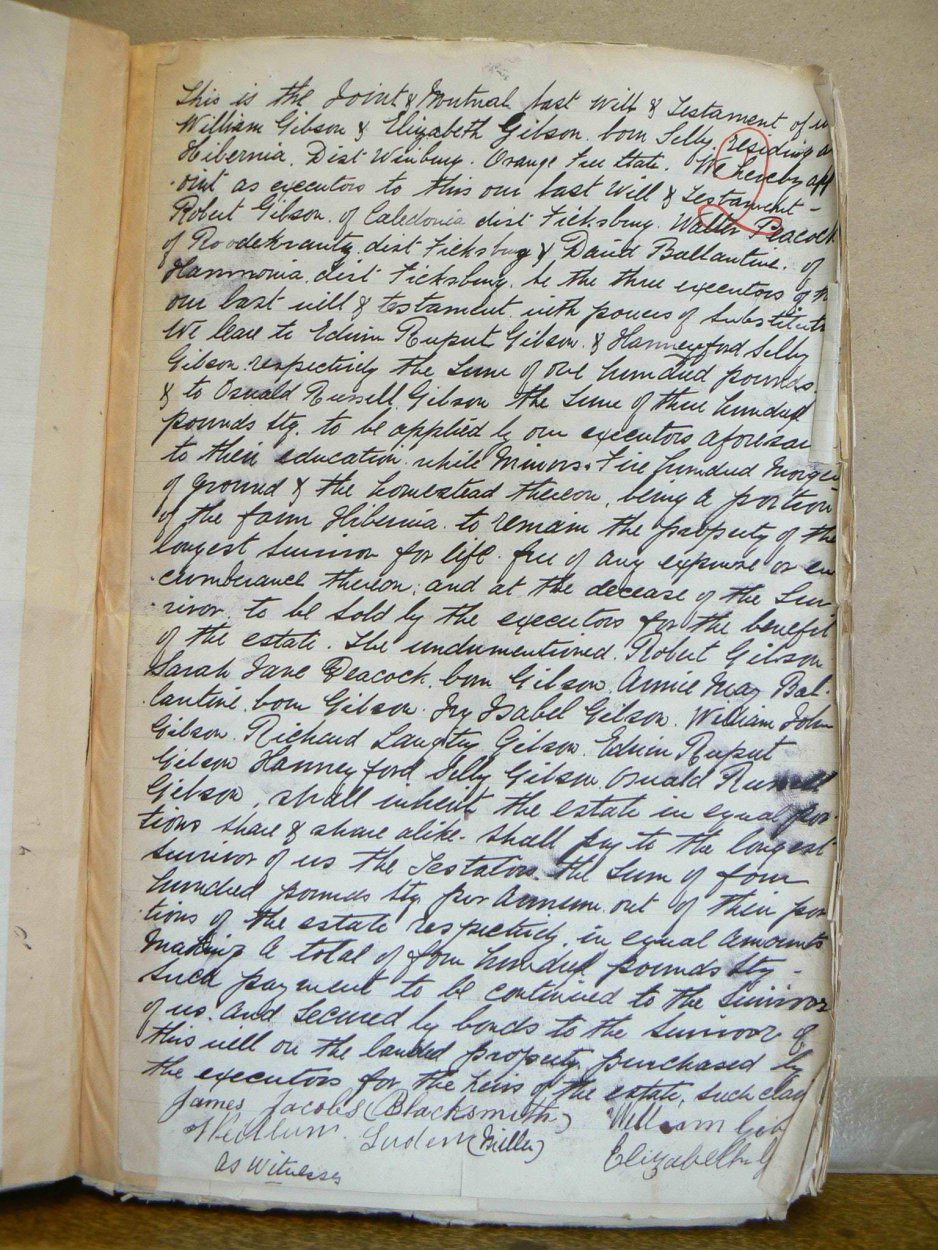 This is the Joint & Mutual last will & Testament of
William Gibson & Elizabeth Gibson born Selby, residing at
Hibernia, Dist Winburg. Orange Free State. We hereby app
oint as executors to this our last will & Testament -
Robert Gibson of Caledonia dist Ficksburg. Walter Peacock
of Roodekrantz dist Ficksburg & David Ballantine. of
Hammonia dist Ficksburg. be the three executors of
our last will & testament with powers of substitut
We leave to Edwin Rupert Gibson. & Hanneyford Selby
Gibson respectively the sume of one hundred pounds
& to Oswald Russell Gibson the sume of three hundred
pounds stg. to be applied by our executors aforesai
to their education while Minors. Five hundred Morgen
of ground & the homestead thereon, being a portion
of the farm Hibernia to remain the property of the
longest survivor for life free of any expense or en
cumberance thereon, and at the decease of the Sur
vivor to be sold by the executors for the benefit
of the estate. The undermentioned Robert Gibson
Sarah Jane Peacock born Gibson. Annie May Bal-
lantine born Gibson. Ivy Isabel Gibson. William John
Gibson. Richard Langtry Gibson. Edwin Rupert
Gibson Hanneyford Selby Gibson Oswald Russell
Gibson, shall inherit the estate in equal por-
tions share & share alike. Shall pay to the longest
survivor of us the Testators the sum of four
hundred pounds stg per annum out of their por
tions of the estate respectively, in equal amounts
Making a total of four hundred pounds stg -
such payment to be continued to the survivor
of us. And secured by bonds to the survivor of
this will on the landed property purchased by
the executors for the heirs of the estate, such
James Jacobs (Blacksmith) William Gib
(Miller) Elizabeth G
as Witnesses